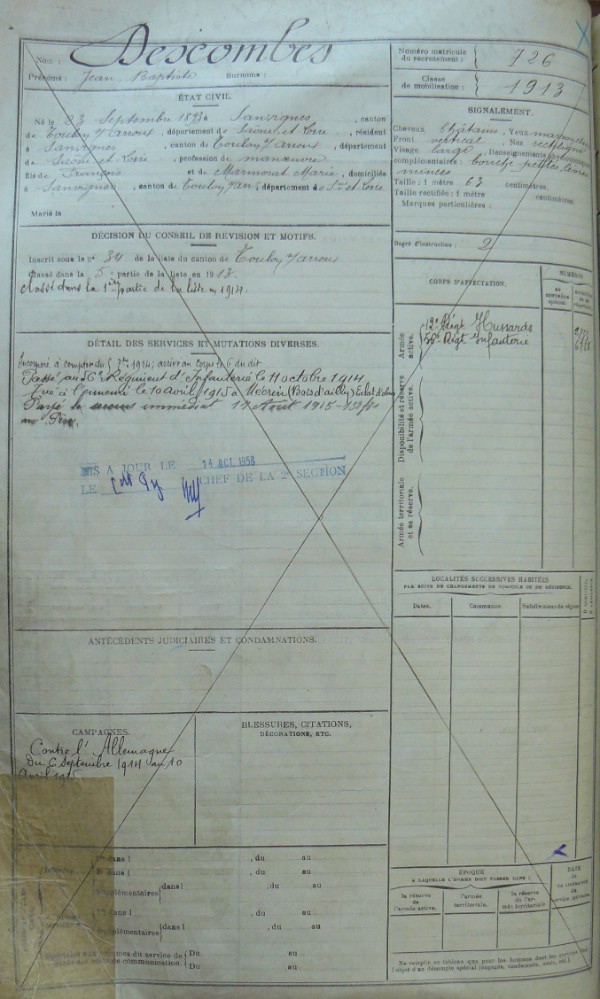 Nom : Descombes
Prénoms : Jean Baptiste Surnoms :
Numéro matricule du recrutement : 726
Classe de mobilisation : 1913
ÉTAT CIVIL.
Né le 23 Septembre 1893 à Sanvignes, canton
de Toulon s/ Arroux, département de Saône et Loire, résident
à Sanvignes, canton de Toulon s/ Arroux, département
de Saône et Loire, profession de manœuvre
fils de François et de Marmorat Marie, domiciliés
à Sanvignes, canton de Toulon s/ Arr, département de S. et Loire
Marié le
SIGNALEMENT.
Cheveux châtains, Yeux
Front vertical Nez rectiligne
Visage large, Renseignements physionomiques
complémentaires : bouche petite lèvres
minces
Taille : 1 mètre 63 centimètres.
Taille rectifiée : 1 mètre centimètres.
Marques particulières :
DÉCISION DU CONSEIL DE RÉVISION ET MOTIFS.
Inscrit sous le n° 34 de la liste du canton de Toulon s/ Arroux
Classé dans la 5e partie de la liste en 1913.
Classé dans la 1ère partie de la liste en 1914.
Degré d'instruction : 2
CORPS D'AFFECTATION.
NUMÉROS
Armée active.
12e Régt Hussards
56e Régt Infanterie
Disponibilité et réserve de l'armée active.
Armée territoriale et sa réserve.
DÉTAIL DES SERVICES ET MUTATIONS DIVERSES.
Incorporé à compter du 1914; arrivé au corps le 6 du dit
Passé au 56e Régiment d'Infanterie le 11 octobre 1914
Tué à l'ennemi le 10 Avril 1915 à (Bois d'ailly)
immédiat Août 1915
MIS A JOUR LE 14 OCT. 1958
LE CHEF DE LA 2e SECTION
LOCALITÉS SUCCESSIVES HABITÉES
PAR SUITE DE CHANGEMENTS DE DOMICILE OU DE RÉSIDENCE.
Dates. Communes. Subdivisions de région
ANTÉCÉDENTS JUDICIAIRES ET CONDAMNATIONS.
CAMPAGNES.
Contre l'Allemagne
Du 6 Septembre 1914 au 10
Avril 1915
BLESSURES, CITATIONS,
DÉCORATIONS, ETC.
dans l , du au
dans l , du au
supplémentaires dans l , du au
dans l , du au
supplémentaires , du au
du service de Du au
communication. Du au
ÉPOQUE
A LAQUELLE L'HOMME DOIT PASSER DANS :
la réserve de l'armée active.
l'armée territoriale.
la réserve de l'armée territoriale
DATE de la libération du service